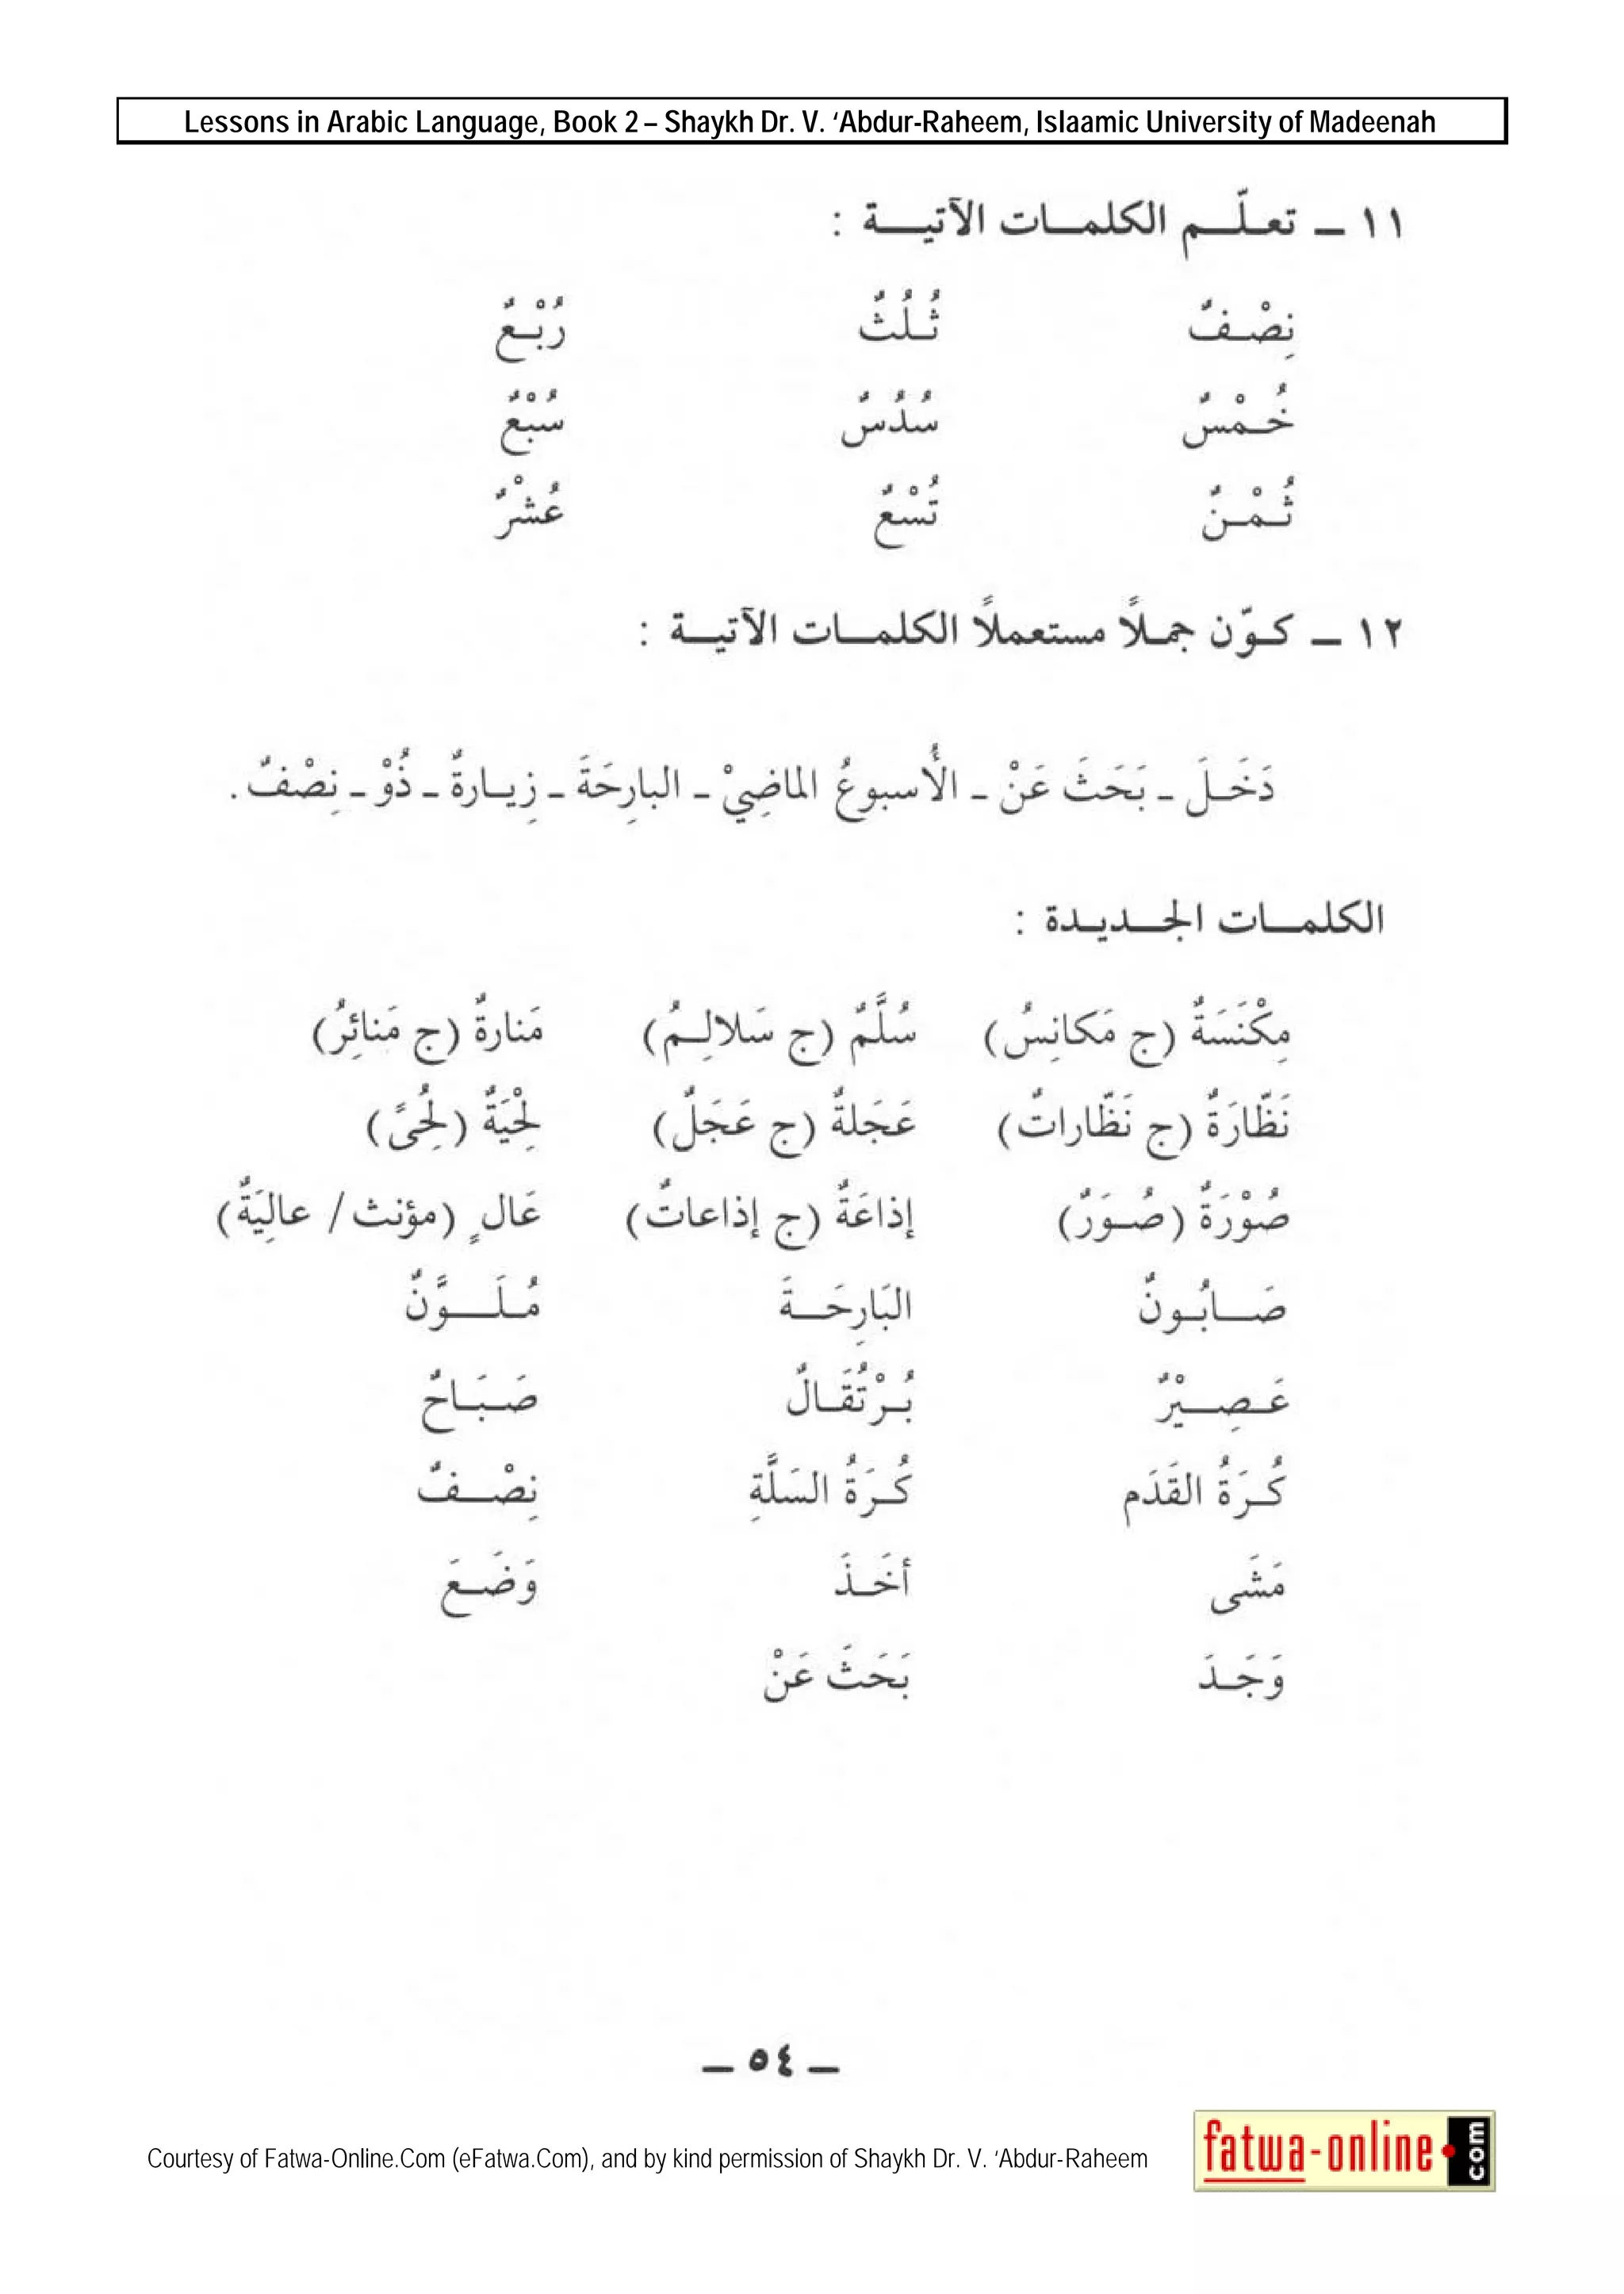 Lessons in Arabic Language, Book 2 – Shaykh Dr. V. ‘Abdur-Raheem, Islaamic University of Madeenah
١١ – تعلّم الكلمات الآتية :
نِصْفٌ ثُلُثٌ رُبْعٌ
خُمْسٌ سُدُسٌ سُبْعٌ
ثُمْنٌ تُسْعٌ عُشْرٌ
١٢ – كوّن جملاً مستعملاً الكلمات الآتية :
دَخَلَ - بَحَثَ عَنْ - الأُسبوعُ الماضِيْ - البارِحَةَ - زِيارةٌ - ذُوْ - نِصْفٌ .
الكلمات الجديدة :
مِكْنَسَةٌ (ج مَكانِسُ) سُلَّمٌ (ج سَلالِمُ) مَنارةٌ (ج مَنائِرُ)
نَظَّارَةٌ (ج نَظَّاراتٌ) عَجَلةٌ (ج عَجَلٌ) لِحْيَةٌ (لِحًى)
صُوْرَةٌ (صُوَرٌ) إذاعَةٌ (ج إذاعاتٌ) عَالٍ (مؤنث/ عالِيَةٌ)
صَابُونٌ البَارِحَةَ مُلَوَّنٌ
عَصِيْرٌ بُرْتُقَالٌ صَبَاحٌ
كُرَةُ القَدَم كُرَةُ السَلَّةِ نِصْفٌ
مَشَى أخَذَ وَضَعَ
وَجَدَ بَحَثَ عَنْ
– ٥٤ –
Courtesy of Fatwa-Online.Com (eFatwa.Com), and by kind permission of Shaykh Dr. V. ‘Abdur-Raheem
fatwa-online.com